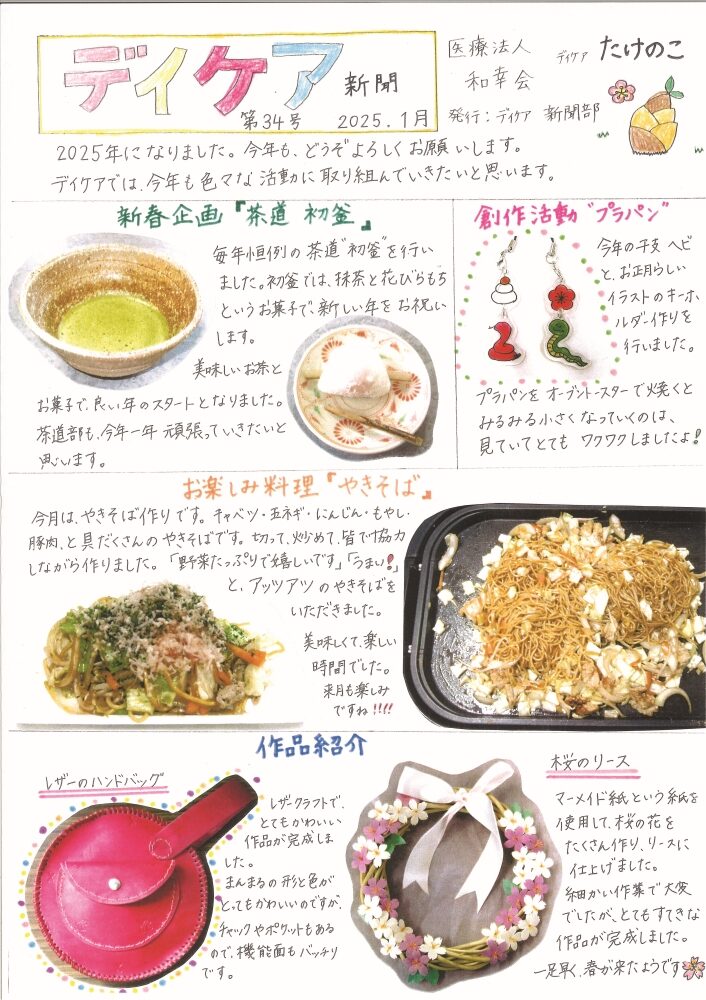 デイケア新聞
第34号 2025.1月
医療法人
和幸会
デイケア たけのこ
発行：デイケア 新聞部
2025年になりました。今年も、どうぞよろしくお願いします。
デイケアでは、今年も色々な活動に取り組んでいきたいと思います。
新春企画『茶道 初釜』
毎年恒例の茶道"初釜"を行い
ました。初釜では、抹茶と花びらもち
というお菓子で、新しい年をお祝い
します。
美味しいお茶と
お菓子で、良い年のスタートとなりました。
茶道部も、今年一年 頑張っていきたいと
思います。
創作活動"プラバン"
今年の干支 ヘビ
と、お正月らしい
イラストのキーホ
ルダー作りを
行いました。
プラバンをオーブントースターで焼くと
みるみる小さくなっていくのは、
見ていてとても ワクワクしましたよ!
お楽しみ料理『やきそば』
今月は、やきそば作りです。キャベツ・玉ネギ・にんじん・もやし・
豚肉、と具だくさんのやきそばです。切って、炒めて、皆で協力
しながら作りました。「野菜たっぷりで嬉しいです」「うまい!」
と、アッツアツのやきそばを
いただきました。
美味しくて、楽しい
時間でした。
来月も楽しみ
ですね!!!!
作品紹介
レザーのハンドバッグ
レザークラフトで、
とてもかわいい
作品が完成しま
した。
まんまるの形と色が
とってもかわいいのですが、
チャックやポケットもある
ので、機能面もバッチリ
です。
桜のリース
マーメイド紙という紙を
使用して、桜の花を
たくさん作り、リースに
仕上げました。
細かい作業で大変
でしたが、とてもすてきな
作品が完成しました。
一足早く、春が来たようです